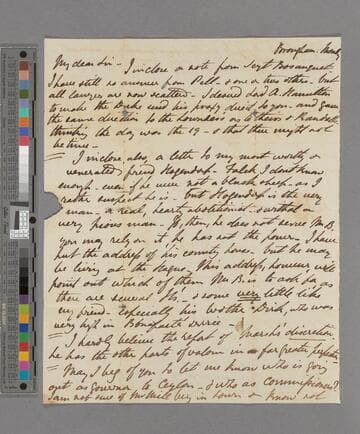 Brougham.
My dear Sir - I inclose a note from Serjt Bosanquet
I have still no answer from Pell - & one or two others - but
all lawyers are now scattered - I desired Ld A. Hamilton
to make the Duke send his proxy direct to you - and gave
the same direction to the
thinking the day was the 19 - & that there might not
be time -
= I inclose, also, a letter to my most worthy &
venerated friend Hogendorp - Falck I don't know
enough - even if he were not a black sheep - as I
rather suspect he is - but Hogendorp is the very
man - a real, hearty abolitionist - & withal a
very pious man - If, then, he does not serve Mr B.
you may rely on it, he has not the power. I have
put the address of his country house - but he may
be living at the Hague. This address, however, will
point out which of them Mr B. is to ask for, as
there are several Hs. - & some very little like
my friend - Especially his brother Dirk, who was
very high in Bonaparte's service -
= I hardly believe the report of discretion
he has the other parts of valour in far greater
= May I beg of you to let me know who is going
out as Governor to Ceylon - & who as Commissioners?
I am not sure if Mr Macaulay is in town & know not